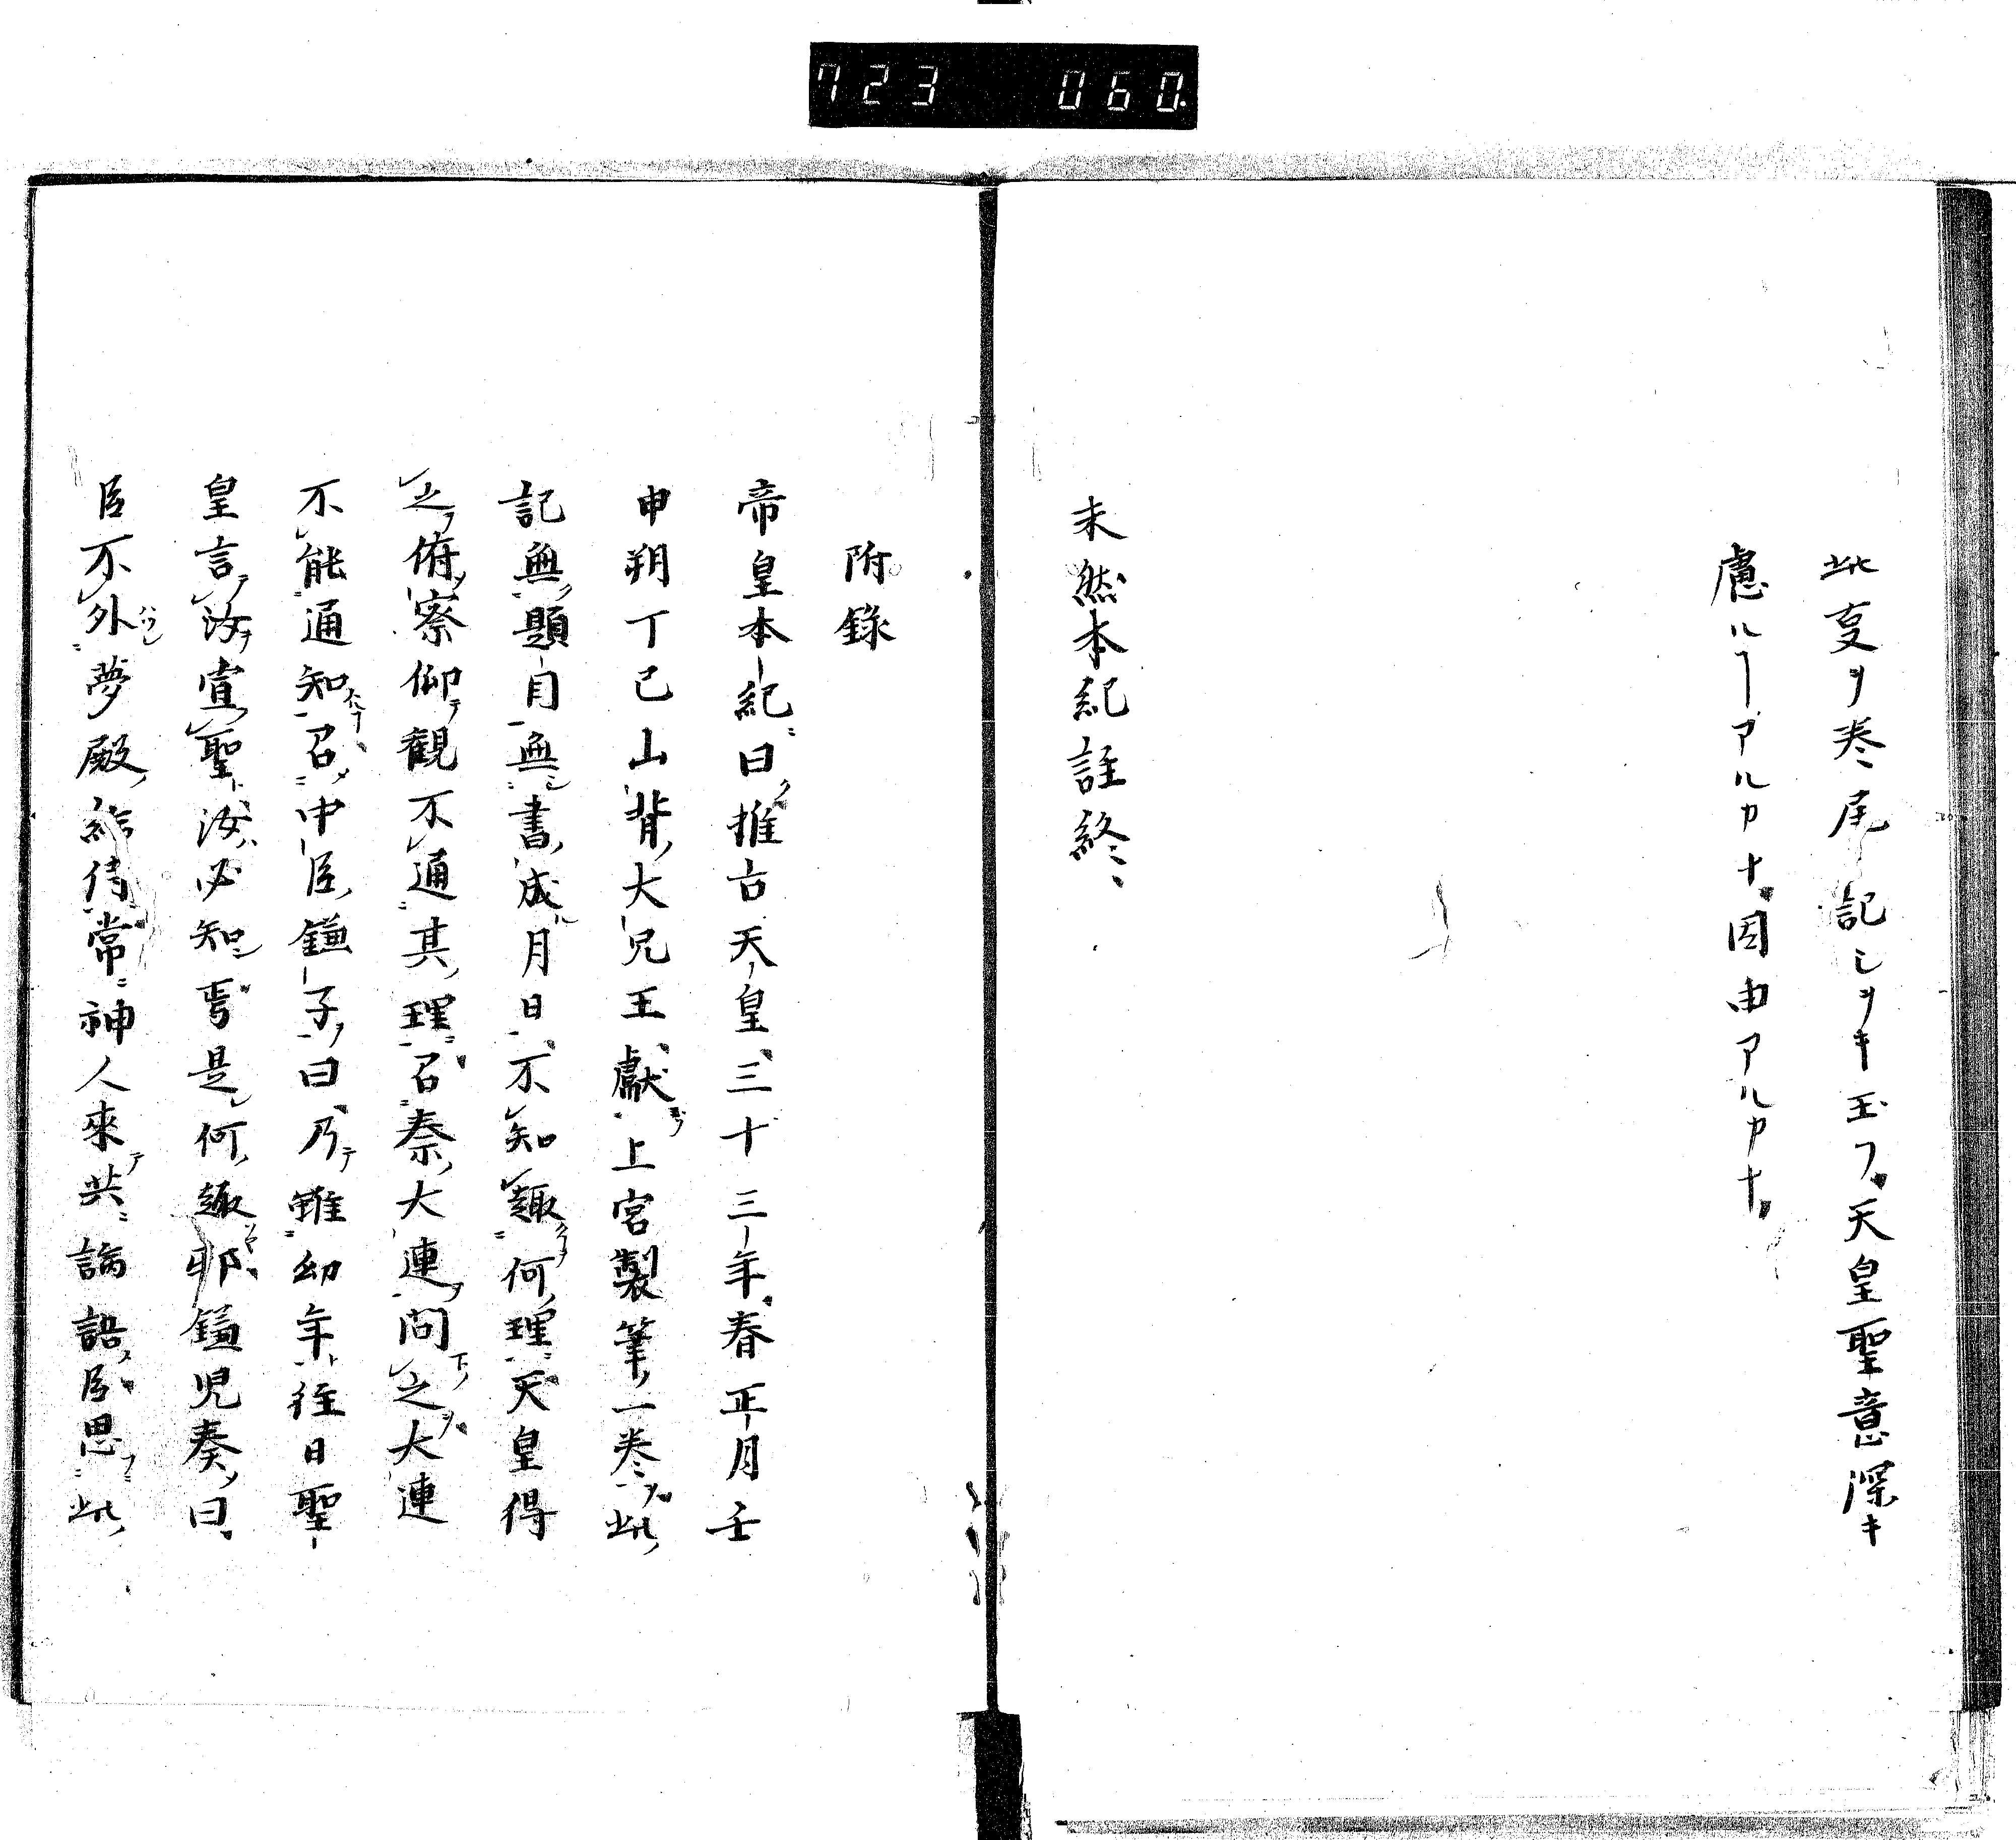 723 060.
此叓ヲ巻尾記シヲキ玉フ天皇聖意深キ
慮ルヿアルカナ因由アルカナ
未然本紀註終
附録
帝皇本紀曰推古天皇三十三年春正月壬
申朔丁已山背大兄王獻上宮製筆一巻此
記無題目無書成月日不知趣何理天皇得
之俯察仰観不通其理召秦大連問之大連
不能通知召中臣鎌子曰乃雖幼年往日聖
皇言汝宣聖汝必知焉是何趣耶鎌児奏曰
臣不外夢殿給侍常神人來共論語臣思此